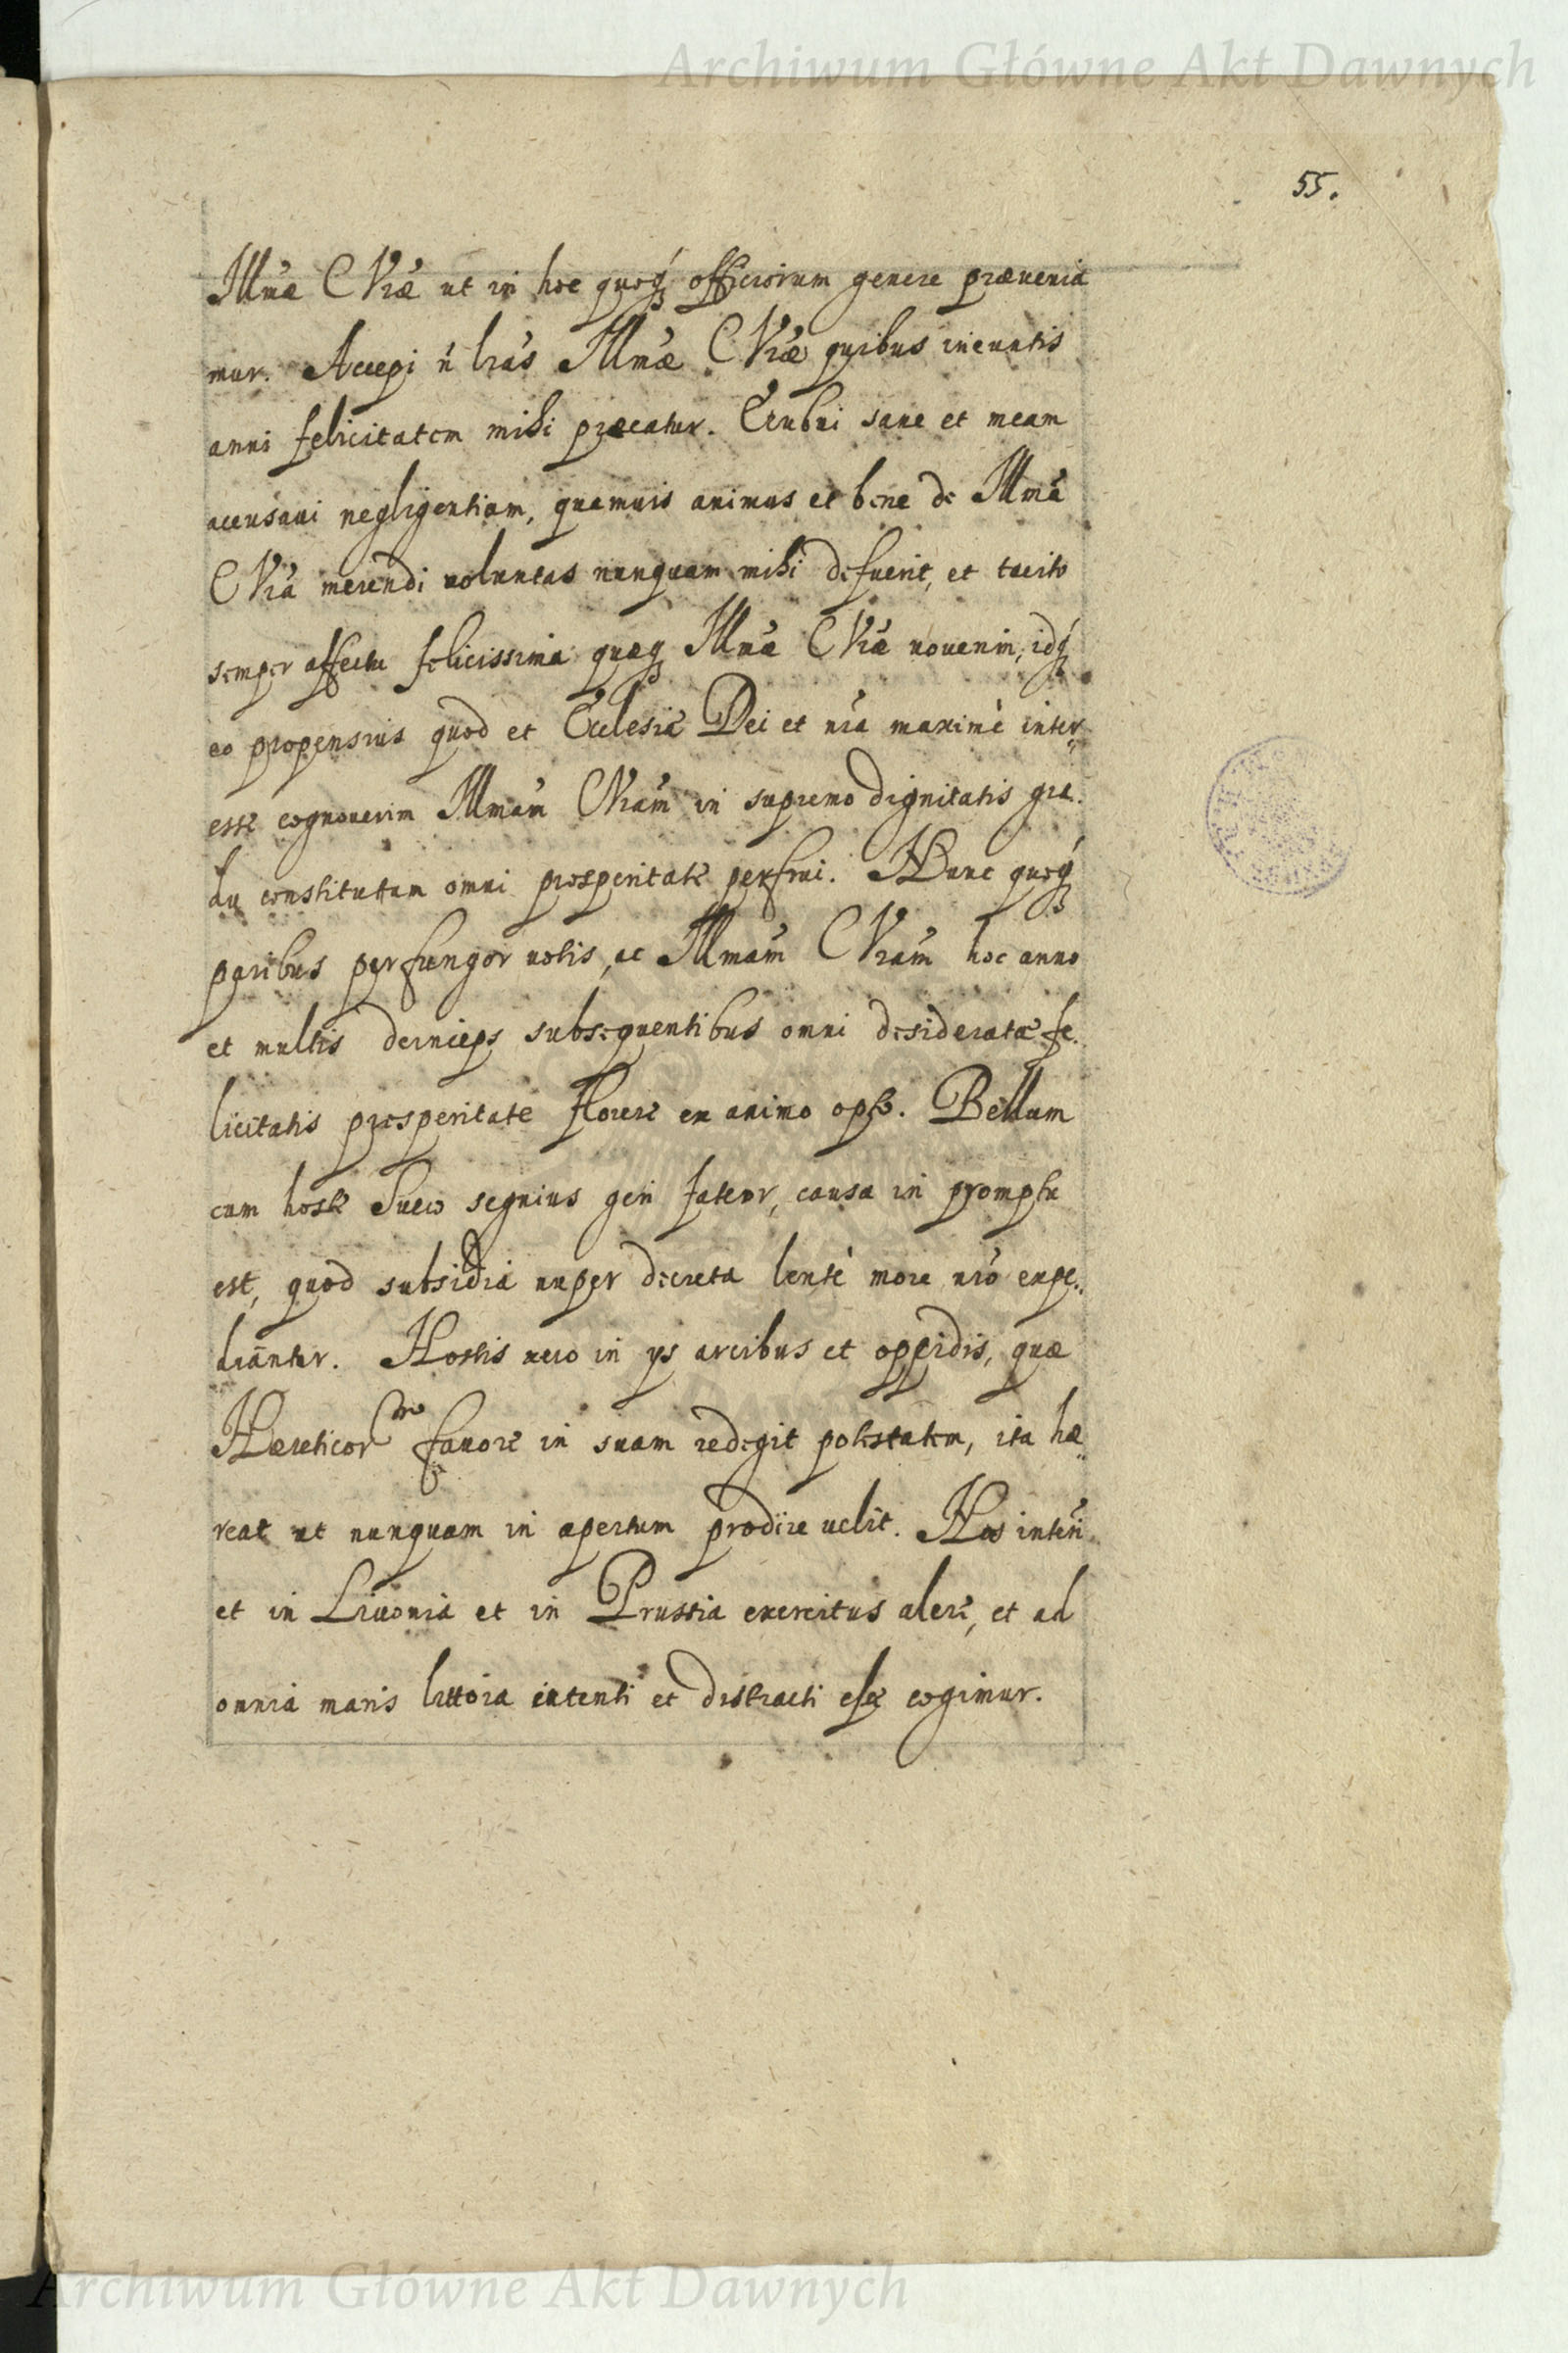 Archiwum Główne Akt Dawnych
55.
Illmæ CVræ ut in hoc quoq́ officiorum genere præuenia
mur. Accepi ń lrás Illmæ CVræ quibus ineuntis
anni felicitatem mihi præcatur. Erubui sane et meam
accusaui negligentiam, quamuis animus et bene de Illmá
CVrá merendi uoluntas nunquam mihi defuerit, et tacito
semper affectu felicissima quæq Illmæ CVræ uouerim, idq́
eo propensius quod et Ecclesiæ Dei et nrá maximè inter,,
esse cognouerim Illmam CVram in supremo dignitatis gra.
du constitutam omni prosperitate perfrui. Nunc quoq́
paribus perfungor uotis, ac Illmam CVram hoc anno
et multis deinceps subsequentibus omni desideratæ fe.
licitatis prosperitate florere ex animo opto. Bellum
cum hoste Sueco segnius geri fateor, causa in promptu
est, quod subsidia nuper decreta lentè more nró expe,,
diantur. Hostis uero in ys arcibus et oppidis, quæ
Hæreticor favore in suam redegit potestatem, ita hæ,,
reat ut nunquam in apertum prodire uelit. Nos interi
et in Liuonia et in Prussia exercitus alere, et ad
omnia maris littora intenti et distracti esse cogimur.
Archiwum Główne Akt Dawnych